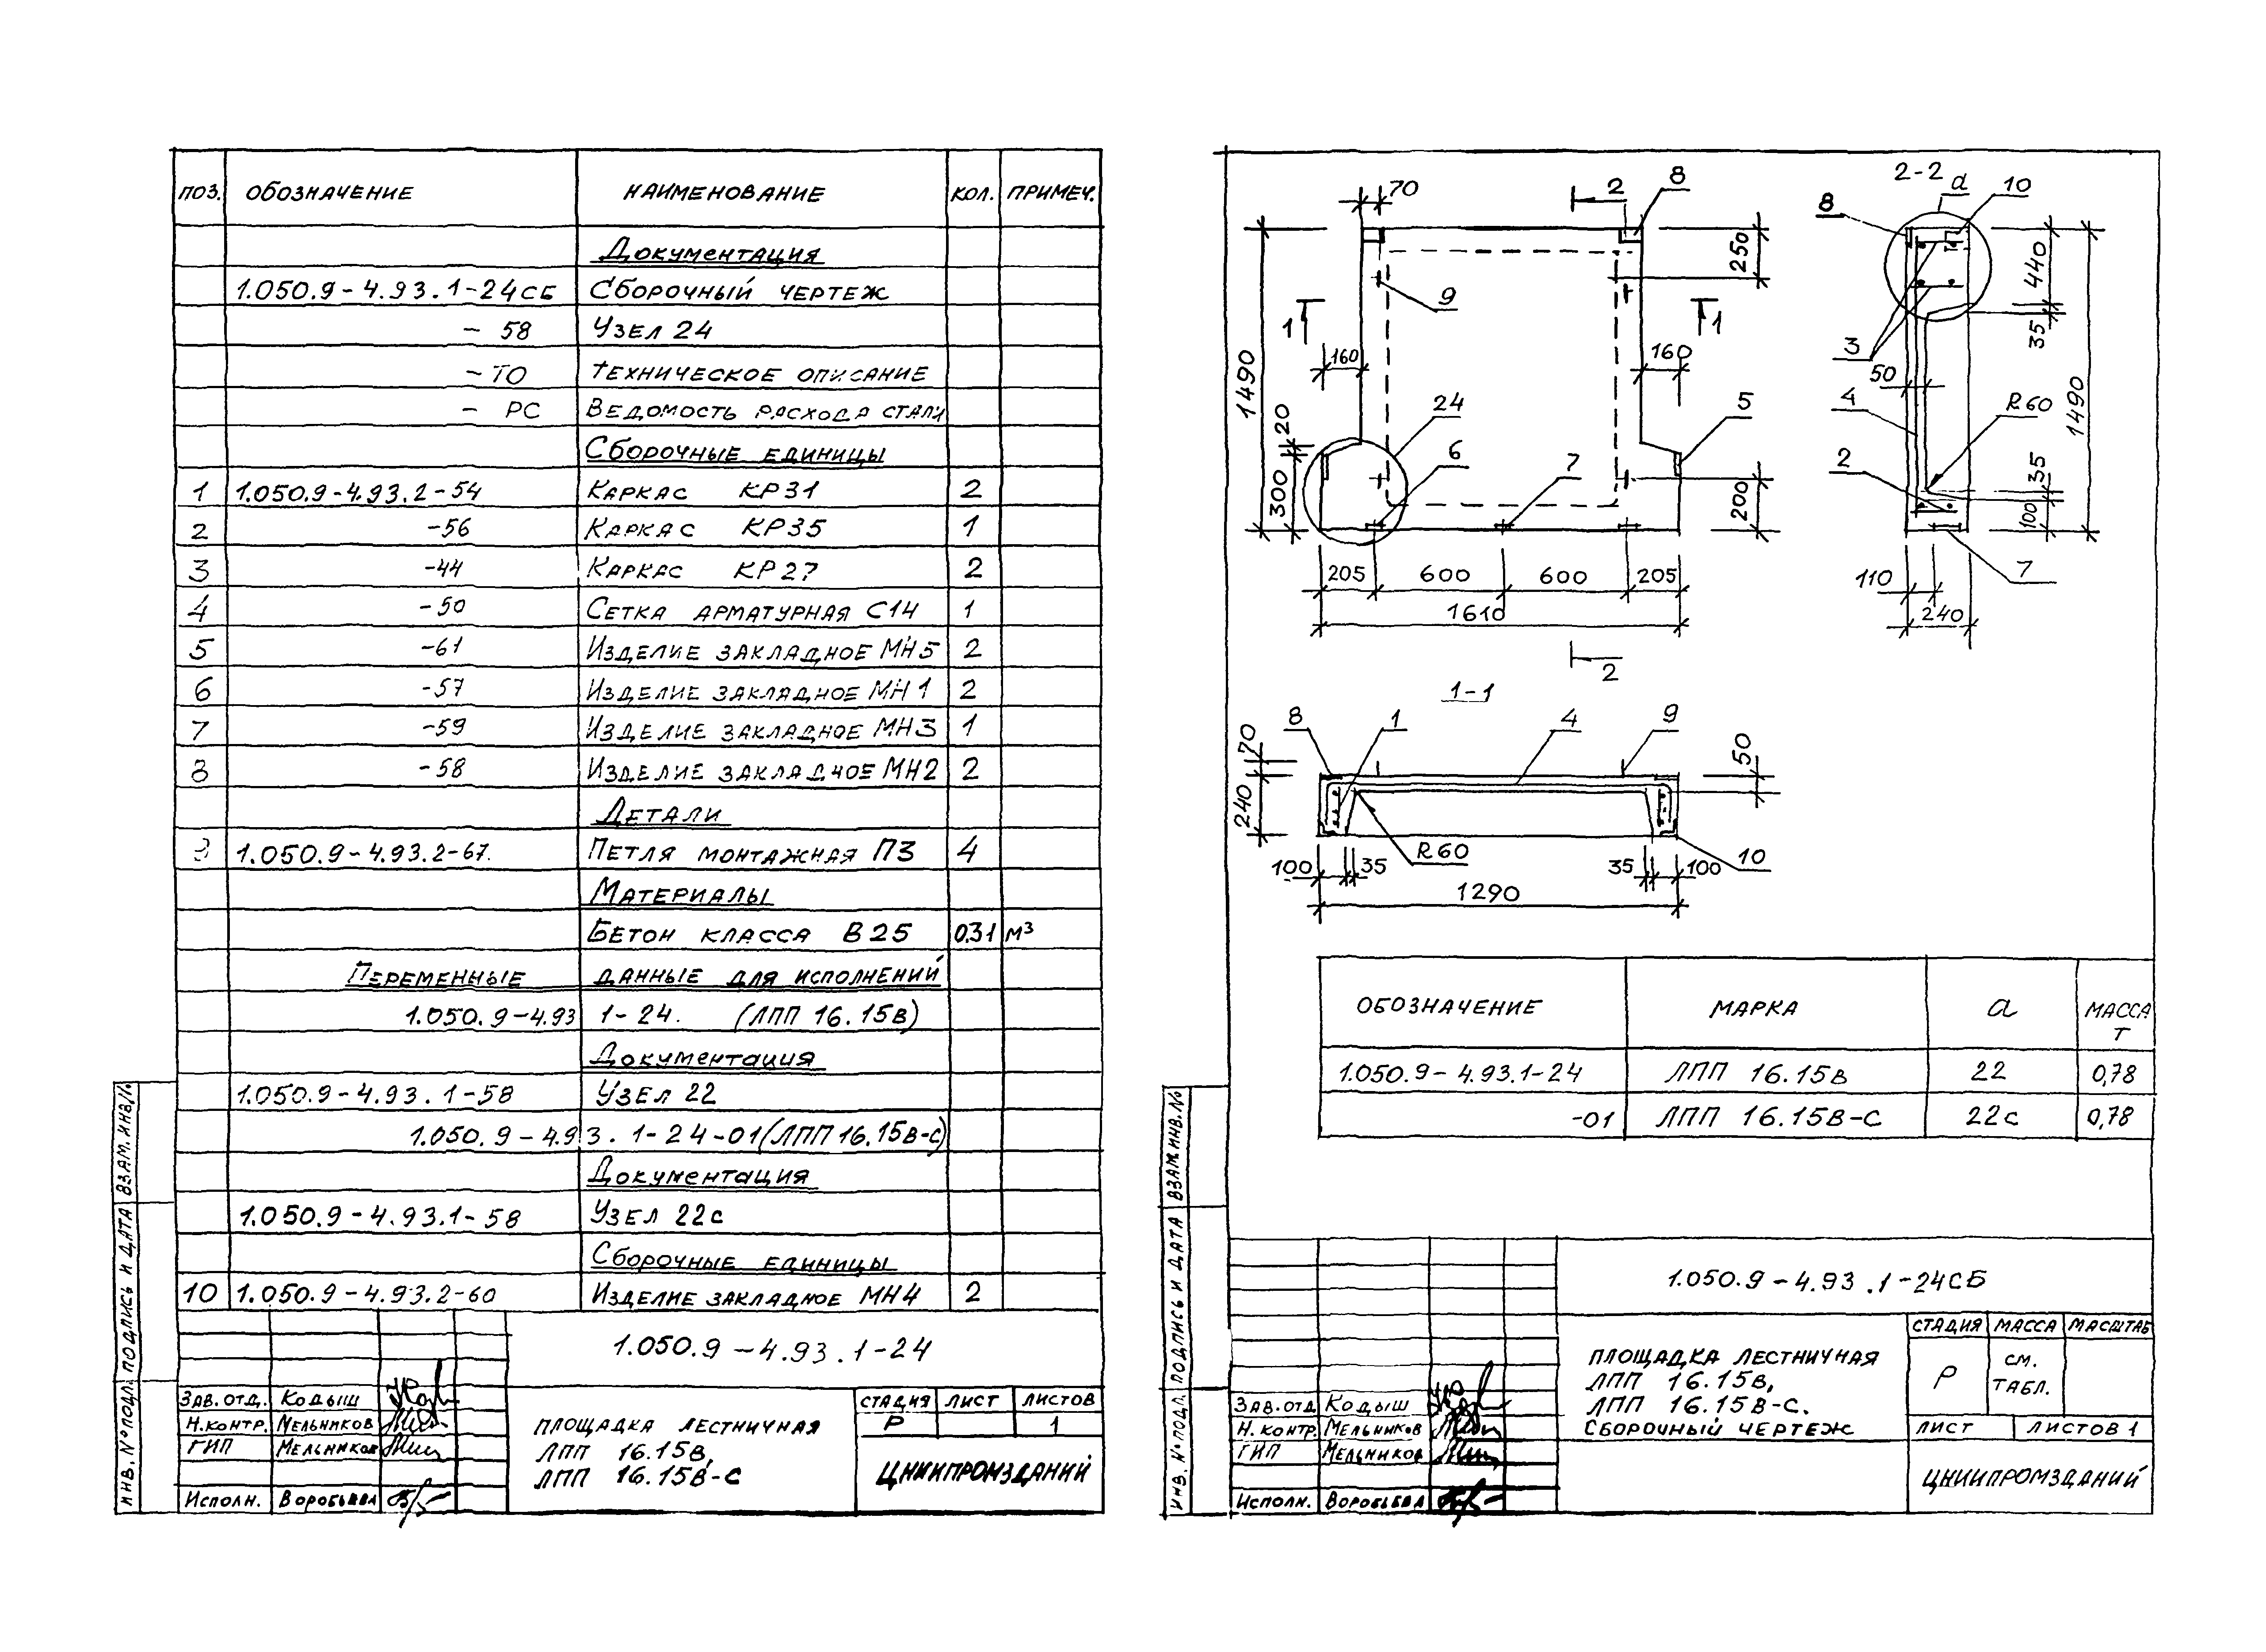 ПОЗ. ОБОЗНАЧЕНИЕ НАИМЕНОВАНИЕ КОЛ. ПРИМЕЧ.
Документация
1.050.9-4.93.1-24СБ Сборочный чертеж
- 58 Узел 24
- ТО Техническое описание
- РС Ведомость расхода стали
Сборочные единицы
1 1.050.9-4.93.2-54 Каркас КР31 2
2 -56 Каркас КР35 1
3 -44 Каркас КР27 2
4 -50 Сетка арматурная С14 1
5 -61 Изделие закладное МН5 2
6 -57 Изделие закладное МН1 2
7 -59 Изделие закладное МН3 1
8 -58 Изделие закладное МН2 2
Детали
9 1.050.9-4.93.2-67. Петля монтажная П3 4
Материалы
Бетон класса В25 0.31 м³
Переменные данные для исполнений
1.050.9-4.93 1-24. (ЛПП 16.15в)
Документация
1.050.9-4.93.1-58 Узел 22
1.050.9-4.93.1-24-01(ЛПП 16.15в-с)
Документация
1.050.9-4.93.1-58 Узел 22с
Сборочные единицы
10 1.050.9-4.93.2-60 Изделие закладное МН4 2
1.050.9-4.93.1-24
Зав.отд. Кодыш
Н.контр. Мельников
ГИП Мельников
Исполн. Воробьева
ПЛОЩАДКА ЛЕСТНИЧНАЯ
ЛПП 16.15в,
ЛПП 16.15в-с
СТАДИЯ ЛИСТ ЛИСТОВ
Р 1
ЦНИИПРОМЗДАНИЙ
ИНВ.№ПОДЛ. ПОДПИСЬ И ДАТА ВЗАМ.ИНВ.№
70 2 8
1490
250
9
1 1
160 160
20
300
24
6
7
5
200
205 600 600 205
1610
2
2-2
а 10
8
440
35
3
50
4
R60
2
35
100
1490
110
240
7
1-1
8 1 4 9
70
240
50
R60
10
100 35 35 100
1290
ОБОЗНАЧЕНИЕ МАРКА а МАССА Т
1.050.9-4.93.1-24 ЛПП 16.15в 22 0,78
-01 ЛПП 16.15в-с 22с 0,78
1.050.9-4.93.1-24СБ
Зав.отд Кодыш
Н.контр. Мельников
ГИП Мельников
Исполн. Воробьева
ПЛОЩАДКА ЛЕСТНИЧНАЯ
ЛПП 16.15в,
ЛПП 16.15в-с.
СБОРОЧНЫЙ ЧЕРТЕЖ
СТАДИЯ МАССА МАСШТАБ
Р СМ. ТАБЛ.
ЛИСТ ЛИСТОВ 1
ЦНИИПРОМЗДАНИЙ
ИНВ.№ПОДЛ. ПОДПИСЬ И ДАТА ВЗАМ.ИНВ.№